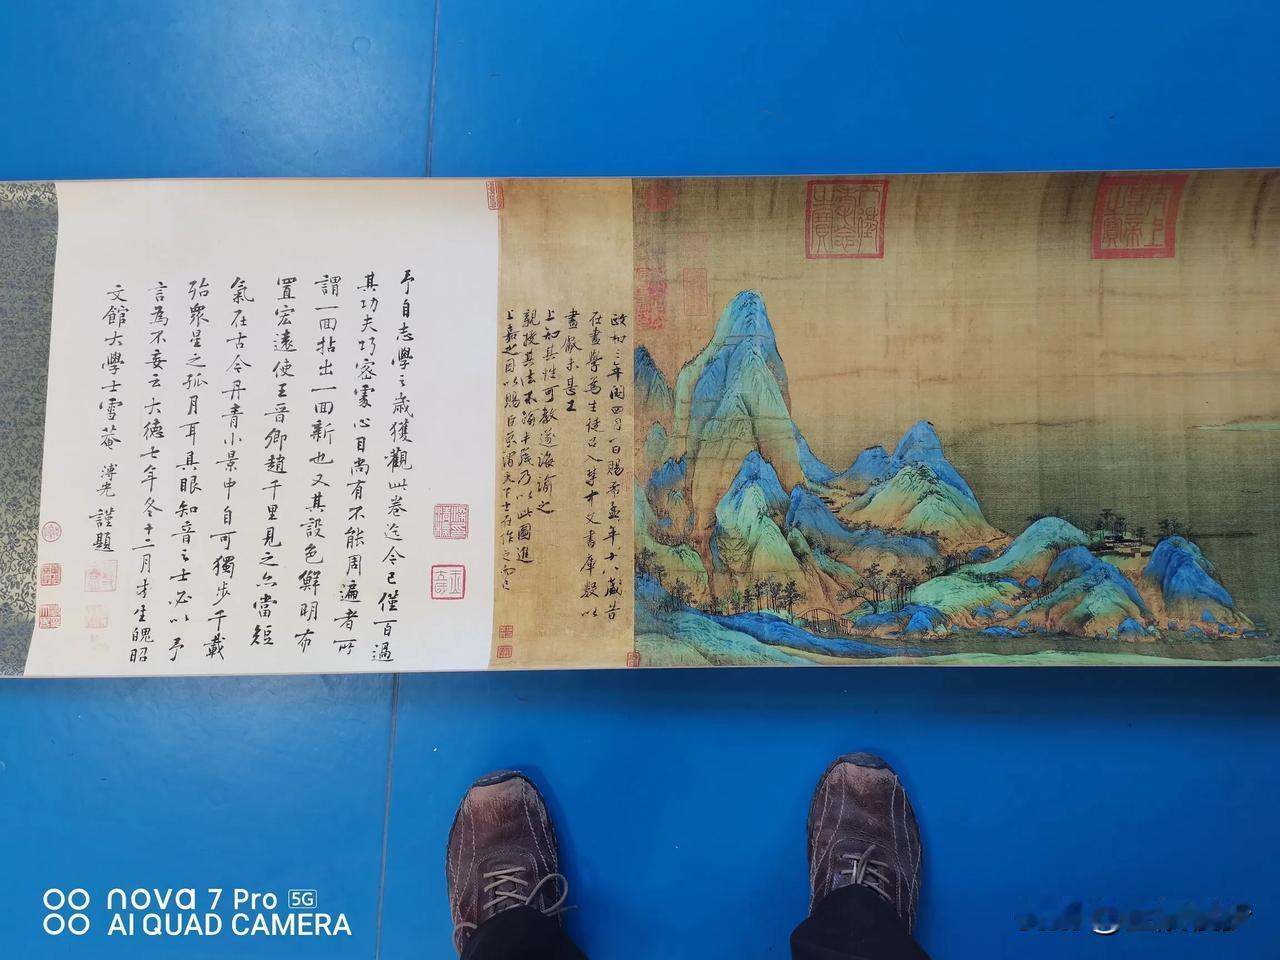 政和三年閏四月一日賜希孟年十八歲昔
在畫學為生徒召入禁中文書庫數以
畫獻未甚工
上知其性可教遂誨諭之
親授其法不踰半歲乃以此圖進
上嘉之因以賜臣京謂天下士在作之而已
予自志學之歲獲觀此卷迄今已僅百過
其功夫巧密處心目尚有不能周遍者所
謂一回拈出一回新也又其設色鮮明布
置宏遠使王晉卿趙千里見之亦當短
氣在古今丹青小景中自可獨步千載
殆眾星之孤月耳具眼知音之士必以予
言為不妄云大德七年冬十二月才生魄昭
文館大學士雪菴溥光謹題
nova 7 Pro 5G
AI QUAD CAMERA